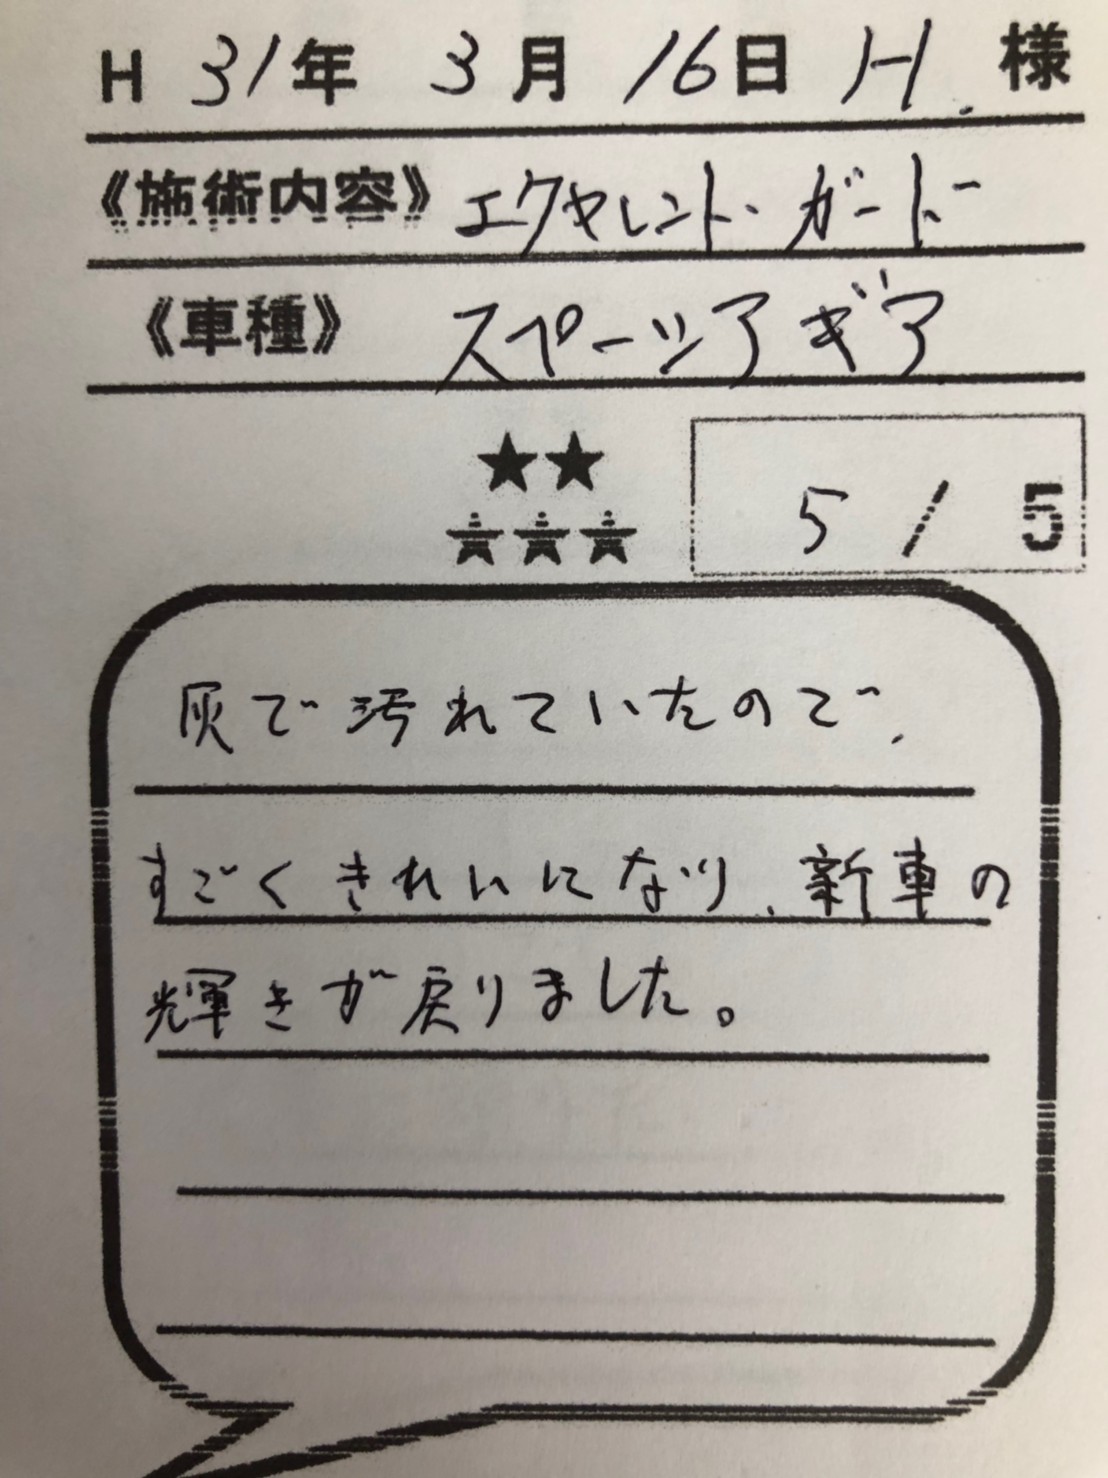 H 31年 3月 16日 H. 様
《施術内容》 エクセレント・ガード
《車種》 スペーシア ギア
★★
★★★
5 / 5
灰で汚れていたので、
すごくきれいになり、新車の
輝きが戻りました。